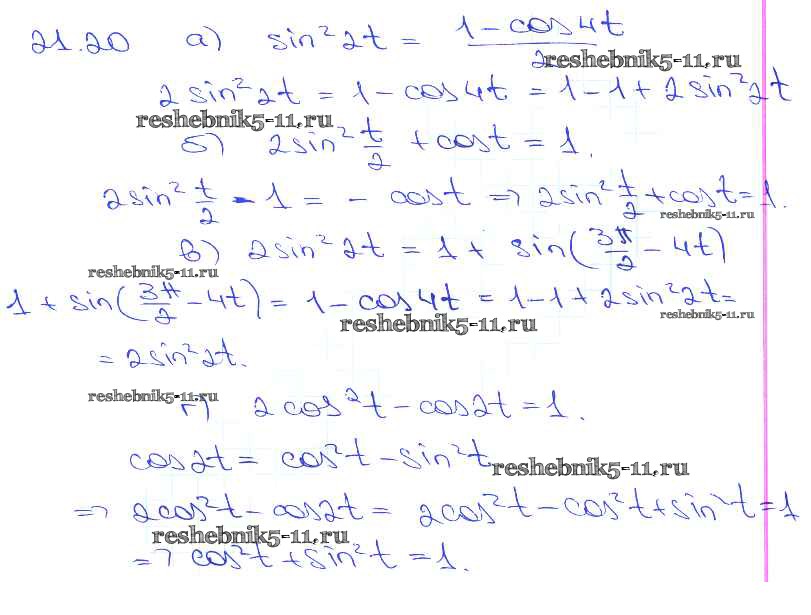 21.20 а) sin² 2t = (1 - cos4t)/2
reshebnik5-11.ru
2 sin² 2t = 1 - cos4t = 1 - 1 + 2 sin² 2t
reshebnik5-11.ru
б) 2sin² t/2 + cost = 1.
2sin² t/2 - 1 = - cost => 2sin² t/2 + cost = 1.
reshebnik5-11.ru
в) 2sin² 2t = 1 + sin(3π/2 - 4t)
reshebnik5-11.ru
1 + sin(3π/2 - 4t) = 1 - cos4t = 1 - 1 + 2sin² 2t =
reshebnik5-11.ru
reshebnik5-11.ru
= 2sin² 2t.
reshebnik5-11.ru
г) 2cos² t - cos2t = 1.
cos2t = cos² t - sin² t
reshebnik5-11.ru
=> 2cos² t - cos2t = 2cos² t - cos² t + sin² t = 1
reshebnik5-11.ru
=> cos² t + sin² t = 1.